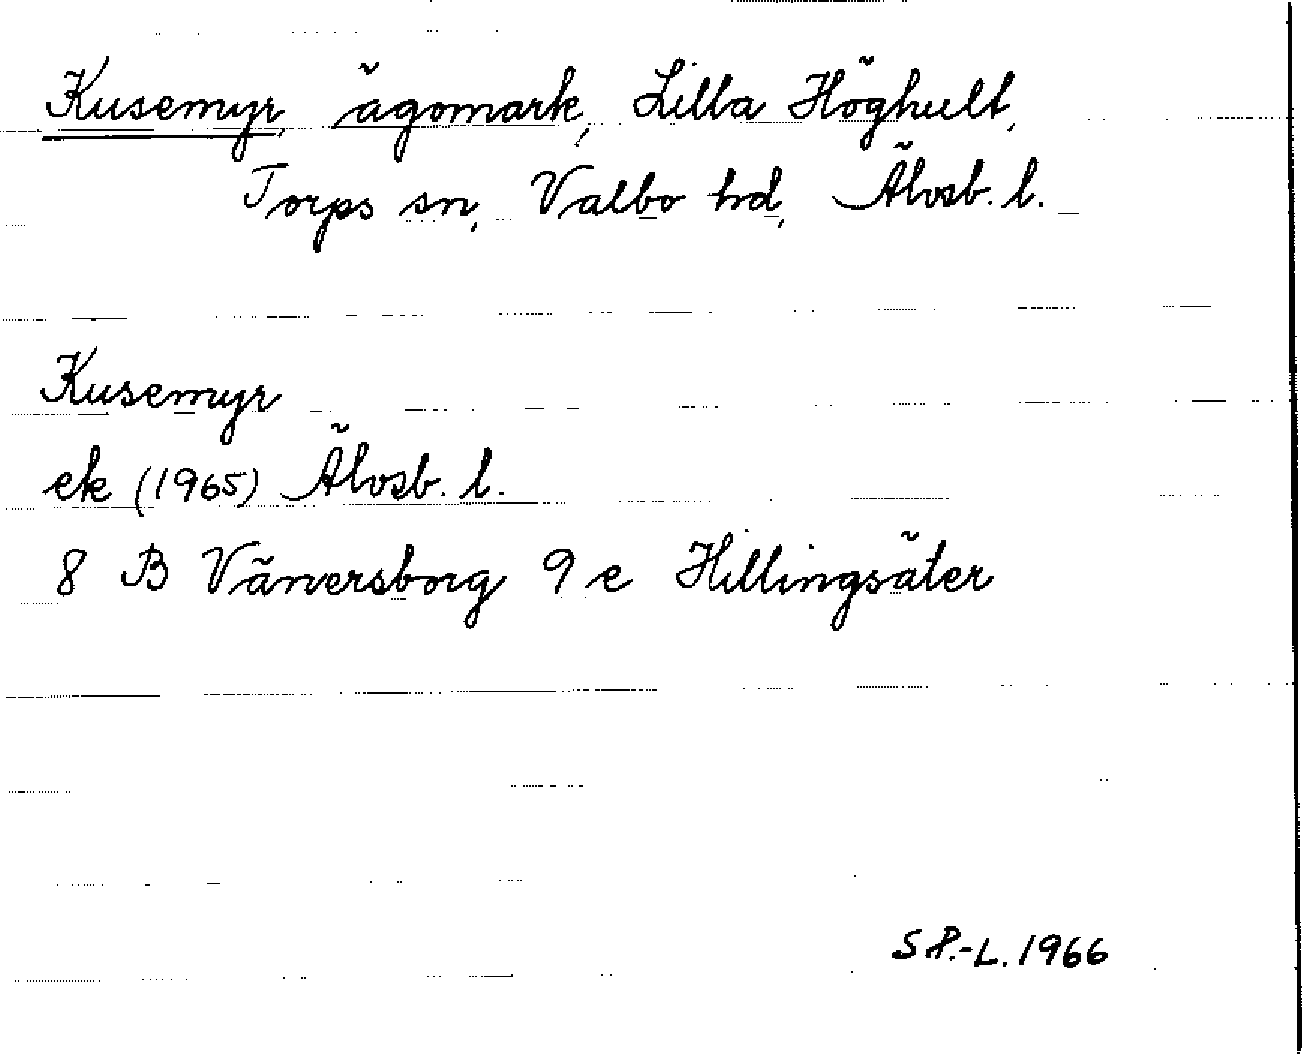 Kusemyr, ägomark, Lilla Höghult,
Torps sn, Valbo hd, Älvsb. l.
Kusemyr
ek (1965) Älvsb. l.
8 B Vänersborg 9 e Hillingsäter
S P.-L. 1966